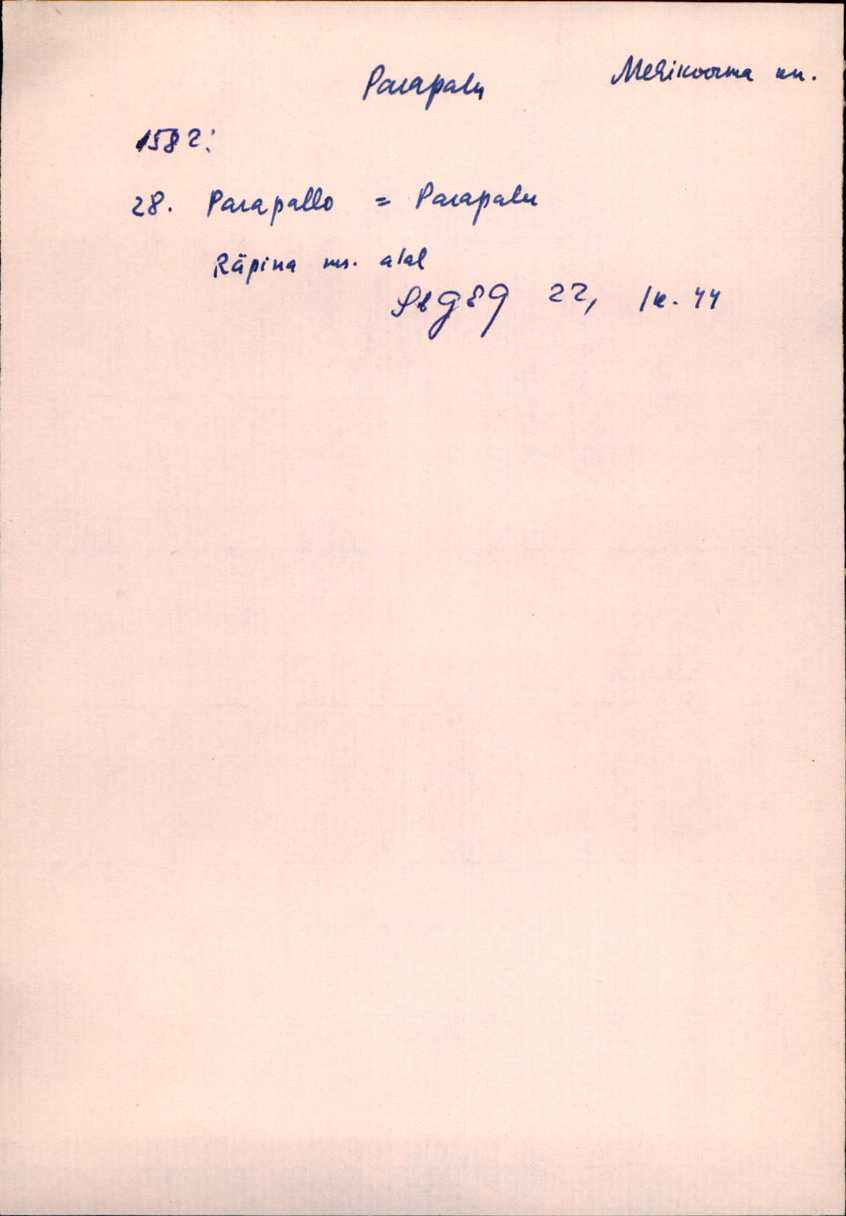 Parapalu Mehikoorma kn.
1582:
28. Parapallo = Parapalu
Räpina ms. alal
SbGEG 22, lk. 44